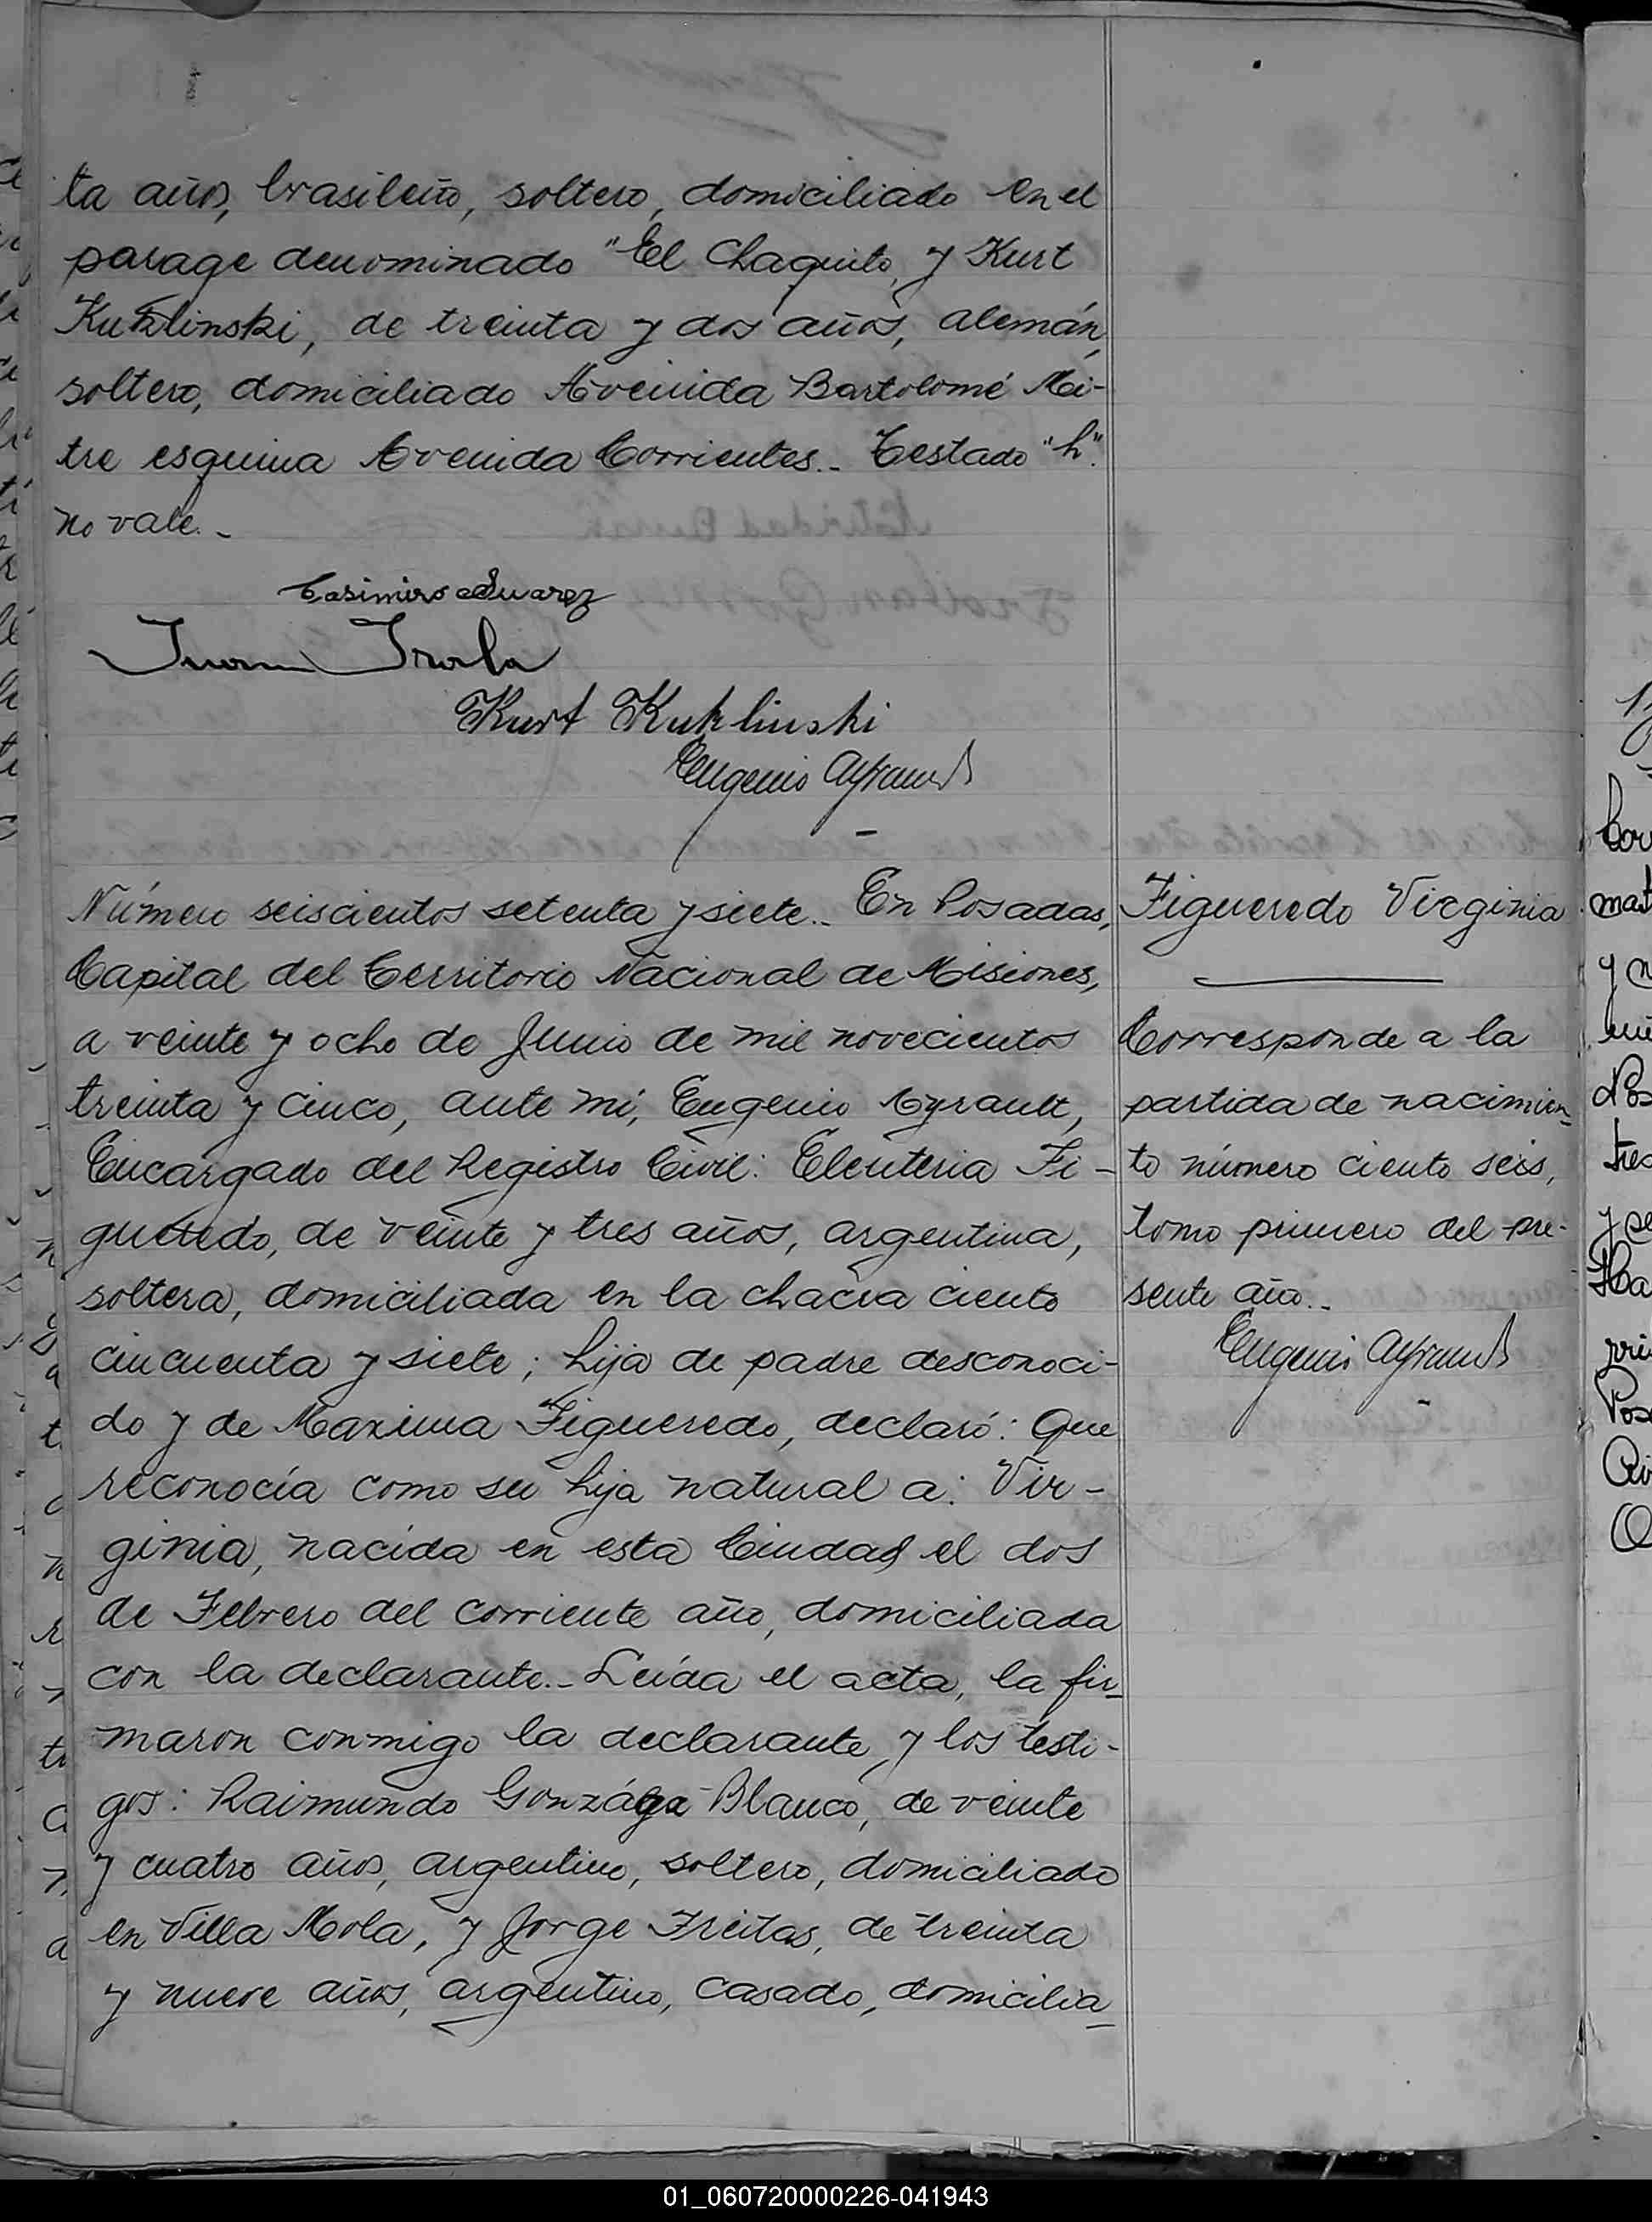 ta años, brasileño, soltero, domiciliado en el
parage denominado "El Chaquito, y Kurt
Kuklinski, de treinta y dos años, alemán,
soltero, domiciliado Avenida Bartolomé Mi-
tre esquina Avenida Corrientes.- Testado "h".
no vale.-
Casimiro Suarez
Juan Irala
Kurt Kuklinski
Eugenio Ayrault
Número seiscientos setenta y siete.- En Posadas,
Capital del Territorio Nacional de Misiones,
a veinte y ocho de Junio de mil novecientos
treinta y cinco, ante mí, Eugenio Ayrault,
Encargado del Registro Civil: Eleuteria Fi-
gueredo, de veinte y tres años, argentina,
soltera, domiciliada en la chacra ciento
cincuenta y siete; hija de padre desconoci-
do y de Maxima Figueredo, declaró: Que
reconocía como su hija natural a: Vir-
ginia, nacida en esta Ciudad el dos
de Febrero del corriente año, domiciliada
con la declarante.- Leída el acta, la fir-
maron conmigo la declarante y los testi-
gos: Raimundo Gonzága Blanco, de veinte
y cuatro años, argentino, soltero, domiciliado
en Villa Mola, y Jorge Freitas, de treinta
y nueve años, argentino, casado, domicilia-
Figueredo Virginia
Corresponde a la
partida de nacimien-
to número ciento seis,
tomo primero del pre-
sente año.-
Eugenio Ayrault
01_060720000226-041943